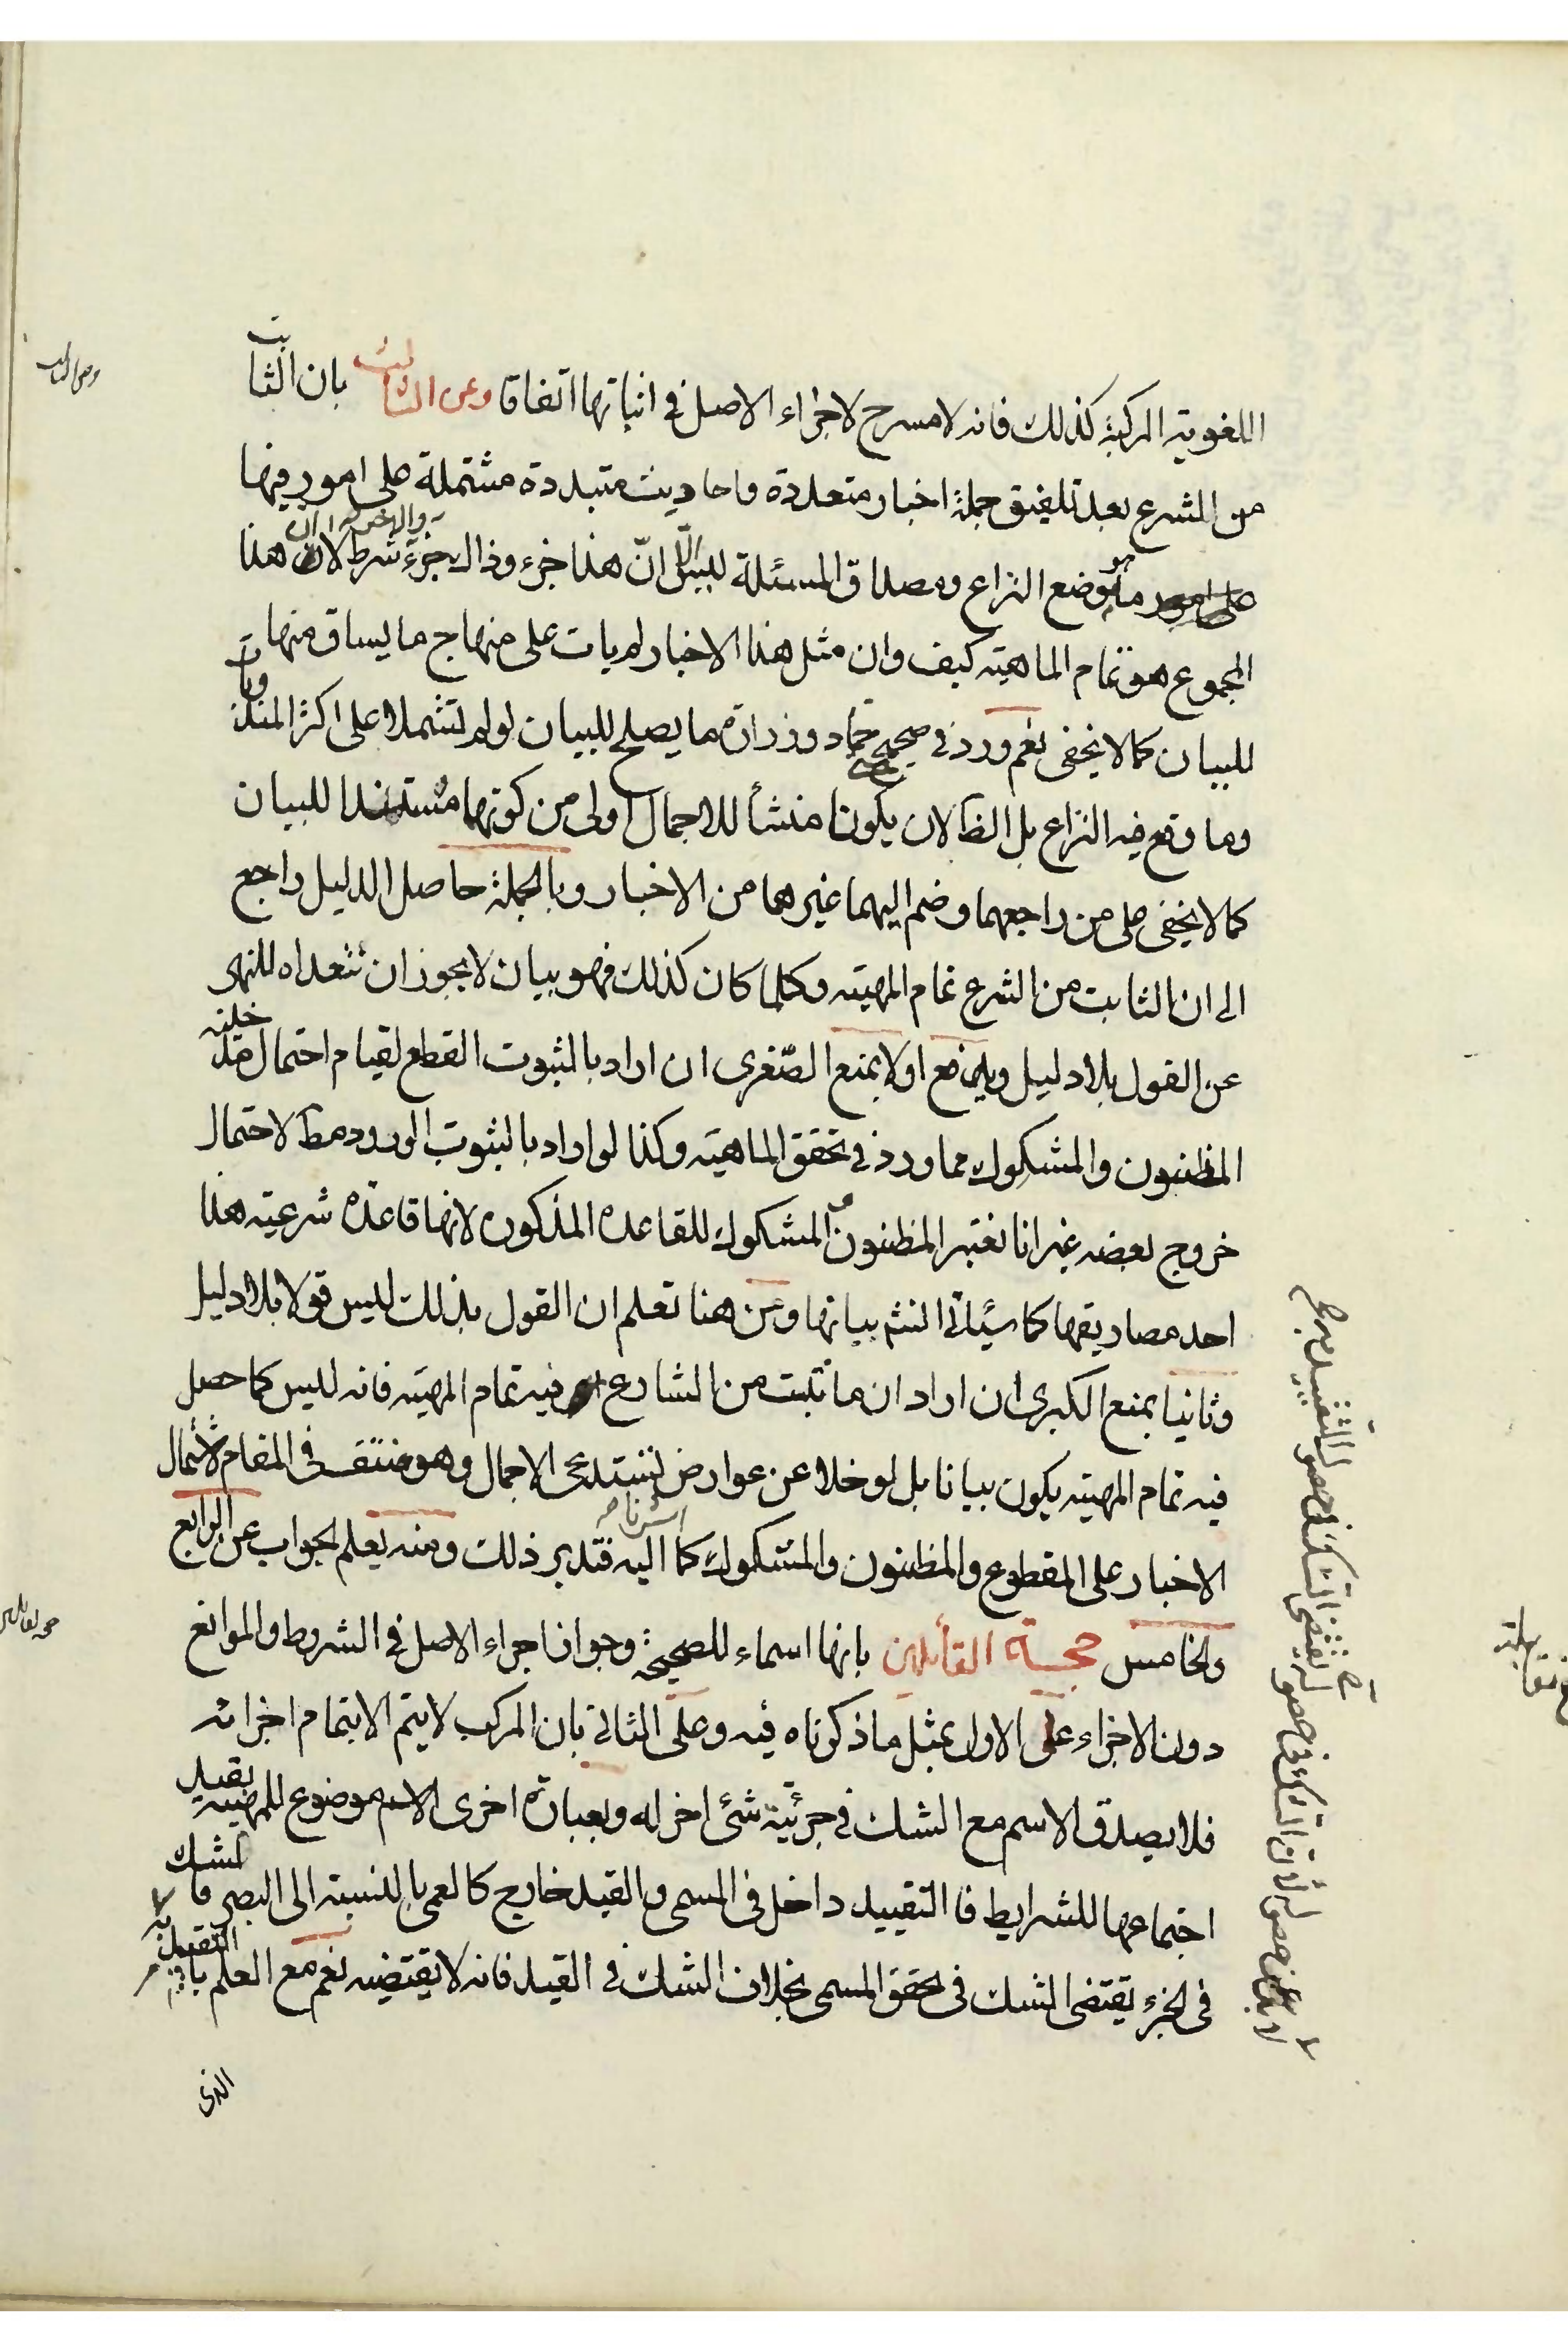 اللغوية المركبة كذلك فانه لا مسرح لاجراء الاصل فى اثباتها اتفاقا وعن الثالث بان الثابت
من الشرع بعد تلفيق جملة اخبار متعددة واحاديث متبددة مشتملة على امور فيها
ما هو موضع النزاع ومصداق المسئلة ليس الا انّ هذا جزء وذاك جزء شرط لان هذا
المجموع هو تمام الماهية كيف وان مثل هذا الاخبار لم يات على منهاج ما يساق منها
للبيان كما لا يخفى نعم ورد فى صحيحى حماد وزرارة ما يصلح للبيان لو لم تشتملا على اكثر المندوبات
وما وقع فيه النزاع بل الظ لان يكونا منشأ للاجمال اولى من كونهما مستندا للبيان
كما لا يخفى على من راجعهما وضم اليهما غيرهما من الاخبار وبالجملة حاصل الدليل راجع
الى ان الثابت من الشرع تمام المهية وكلما كان كذلك فهو بيان لا يجوز ان نتعداه للنهى
عن القول بلا دليل ويدفع اولا بمنع الصّغرى ان اراد بالثبوت القطع لقيام احتمال مدخلية
المظنون والمشكوك مما ورد فى تحقق الماهية وكذا لو اراد بالثبوت الورود مط لاحتمال
خروج بعضه غير انا نعتبر المظنون والمشكوك للقاعدة المذكورة لانها قاعدة شرعية هذا
احد مصاديقها كما سيأتى انش بيانها ومن هنا تعلم ان القول بذلك ليس قولا بلا دليل
وثانيا بمنع الكبرى ان اراد ان ما ثبت من الشارع فيه تمام المهية فانه ليس كما حصل
فيه تمام المهية يكون بيانا بل لو خلا عن عوارض تستدعى الاجمال وهو منتف فى المقام لاشتمال
الاخبار على المقطوع والمظنون والمشكوك كما اشرنا اليه فتدبر ذلك ومنه يعلم الجواب عن الرابع
والخامس حجة القائلين بانها اسماء للصحيحة وجواز اجراء الاصل فى الشروط والموانع
دون الاجزاء على الاول بمثل ما ذكرناه فيه وعلى الثانى بان المركب لا يتم الا بتمام اجزائه
فلا يصدق الاسم مع الشك فى جزئية شئ اخر له وبعبارة اخرى الاسم موضوع للمهية بقيد
اجتماعها للشرايط فالتقييد داخل فى المسمى والقيد خارج كالعمى بالنسبة الى البصر فالشك
فى الجزء يقتضى الشك فى تحقق المسمى بخلاف الشك فى القيد فانه لا يقتضيه نعم مع العلم بالتقييد به
الذى